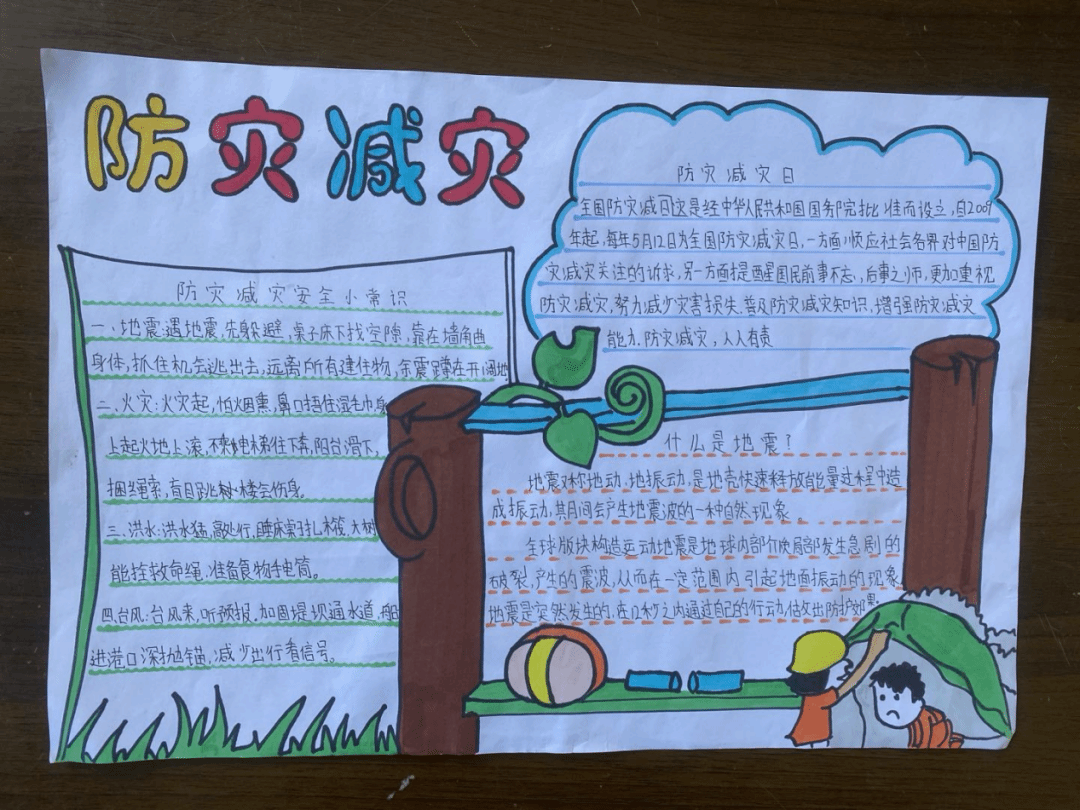 防灾减灾
防灾减灾安全小常识
一、地震:遇地震,先躲避,桌子床下找空隙,靠在墙角曲
身体,抓住机会逃出去,远离所有建住物,余震蹲在开阔地
二、火灾:火灾起,怕烟熏,鼻口捂住湿毛巾,身
上起火地上滚,不乘电梯往下奔,阳台滑下,
捆绳索,盲目跳楼会伤身。
三、洪水:洪水猛,高处行,睡床桌扎木筏,大树
能拴救命绳,准备食物手电筒。
四.台风:台风来,听预报,加固堤坝通水道,船
进港口深抛锚,减少出行看信号。
防灾减灾日
全国防灾减灾是经中华人民共和国国务院批准而设立,自2009
年起,每年5月12日为全国防灾减灾日,一方面顺应社会各界对中国防
灾减灾关注的诉求,另一方面提醒国民前事不忘,后事之师,更加重视
防灾减灾,努力减少灾害损失.普及防灾减灾知识,增强防灾减灾
能力.防灾减灾,人人有责
什么是地震?
地震又称地动、地振动,是地壳快速释放能量过程中造
成振动,其月间会产生地震波的一种自然现象。
全球版块构造运动地震是地球内部介质局部发生急剧的
破裂,产生的震波,从而在一定范围内引起地面振动的现象
地震是突然发生的,在12秒之内通过自己的行动,做出防护效果